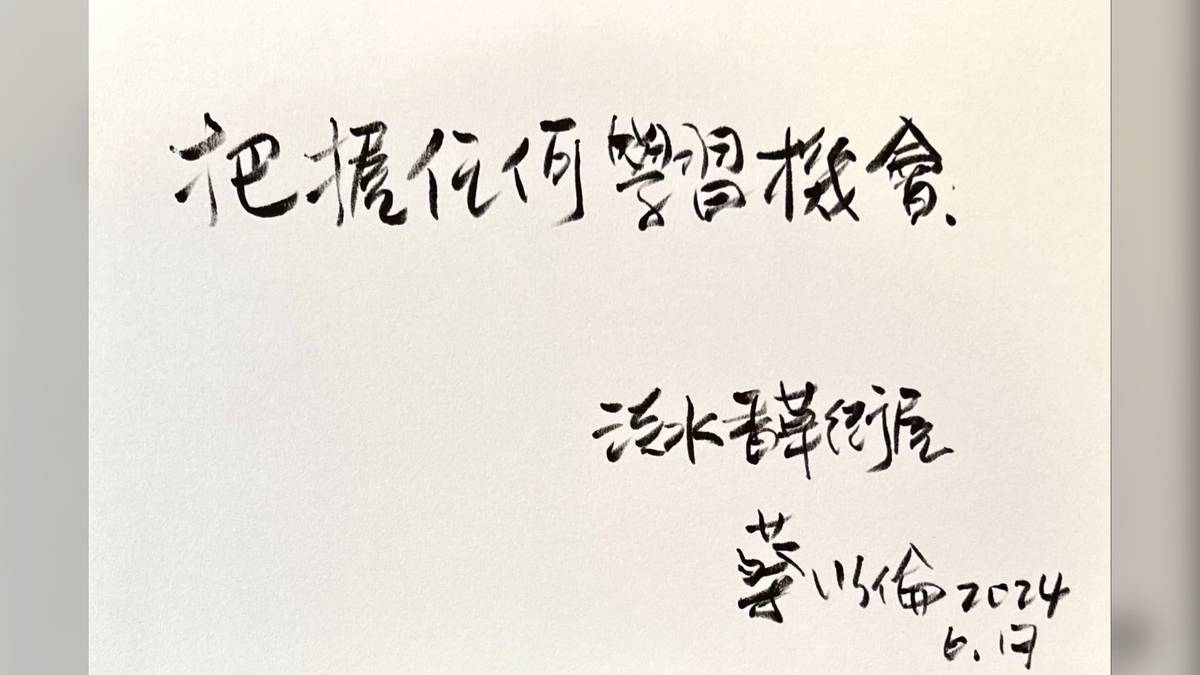 把握任何學習機會.
淡水香草街屋
蔡以倫 2024
6.17